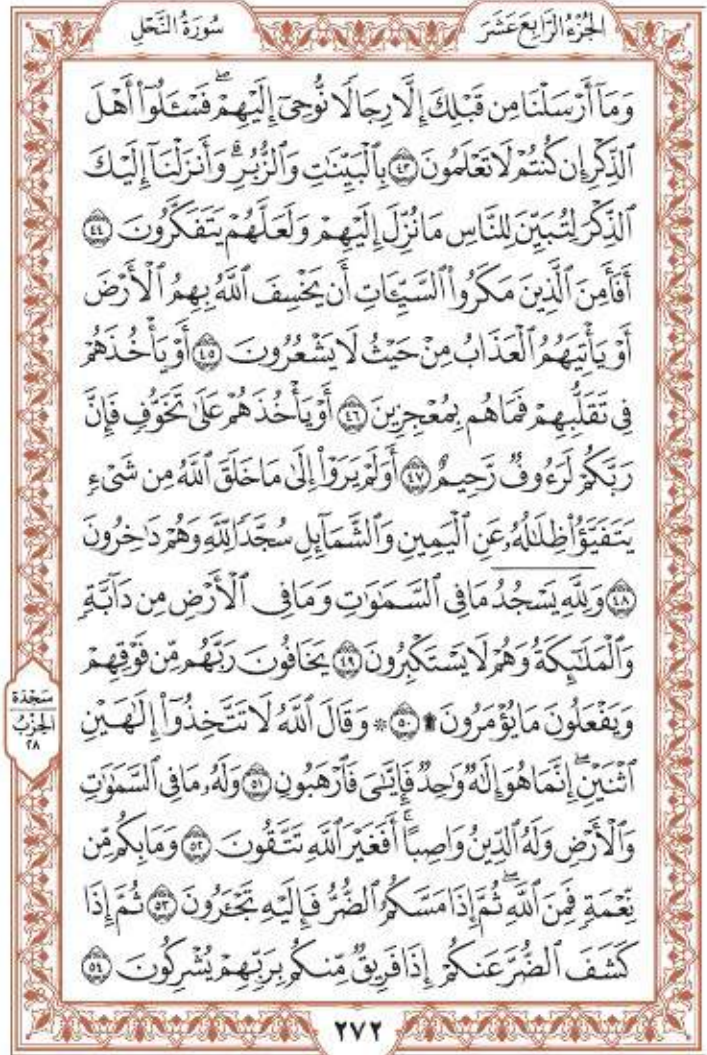 سُورَةُ النَّحْلِ
الجُزْءُ الرَّابِعَ عَشَرَ
وَمَآ أَرْسَلْنَا مِن قَبْلِكَ إِلَّا رِجَالًا نُّوحِىٓ إِلَيْهِمْ ۖ فَسْـَٔلُوٓا۟ أَهْلَ
ٱلذِّكْرِ إِن كُنتُمْ لَا تَعْلَمُونَ ٤٣ بِٱلْبَيِّنَـٰتِ وَٱلزُّبُرِ ۗ وَأَنزَلْنَآ إِلَيْكَ
ٱلذِّكْرَ لِتُبَيِّنَ لِلنَّاسِ مَا نُزِّلَ إِلَيْهِمْ وَلَعَلَّهُمْ يَتَفَكَّرُونَ ٤٤
أَفَأَمِنَ ٱلَّذِينَ مَكَرُوا۟ ٱلسَّيِّـَٔاتِ أَن يَخْسِفَ ٱللَّهُ بِهِمُ ٱلْأَرْضَ
أَوْ يَأْتِيَهُمُ ٱلْعَذَابُ مِنْ حَيْثُ لَا يَشْعُرُونَ ٤٥ أَوْ يَأْخُذَهُمْ
فِى تَقَلُّبِهِمْ فَمَا هُم بِمُعْجِزِينَ ٤٦ أَوْ يَأْخُذَهُمْ عَلَىٰ تَخَوُّفٍ فَإِنَّ
رَبَّكُمْ لَرَءُوفٌ رَّحِيمٌ ٤٧ أَوَلَمْ يَرَوْا۟ إِلَىٰ مَا خَلَقَ ٱللَّهُ مِن شَىْءٍ
يَتَفَيَّؤُا۟ ظِلَـٰلُهُۥ عَنِ ٱلْيَمِينِ وَٱلشَّمَآئِلِ سُجَّدًا لِّلَّهِ وَهُمْ دَٰخِرُونَ
٤٨ وَلِلَّهِ يَسْجُدُ مَا فِى ٱلسَّمَـٰوَٰتِ وَمَا فِى ٱلْأَرْضِ مِن دَآبَّةٍ
وَٱلْمَلَـٰٓئِكَةُ وَهُمْ لَا يَسْتَكْبِرُونَ ٤٩ يَخَافُونَ رَبَّهُم مِّن فَوْقِهِمْ
وَيَفْعَلُونَ مَا يُؤْمَرُونَ ۩ ٥٠ ۞ وَقَالَ ٱللَّهُ لَا تَتَّخِذُوٓا۟ إِلَـٰهَيْنِ
ٱثْنَيْنِ ۖ إِنَّمَا هُوَ إِلَـٰهٌ وَٰحِدٌ ۖ فَإِيَّـٰىَ فَٱرْهَبُونِ ٥١ وَلَهُۥ مَا فِى ٱلسَّمَـٰوَٰتِ
وَٱلْأَرْضِ وَلَهُ ٱلدِّينُ وَاصِبًا ۚ أَفَغَيْرَ ٱللَّهِ تَتَّقُونَ ٥٢ وَمَا بِكُم مِّن
نِّعْمَةٍ فَمِنَ ٱللَّهِ ۖ ثُمَّ إِذَا مَسَّكُمُ ٱلضُّرُّ فَإِلَيْهِ تَجْـَٔرُونَ ٥٣ ثُمَّ إِذَا
كَشَفَ ٱلضُّرَّ عَنكُمْ إِذَا فَرِيقٌ مِّنكُم بِرَبِّهِمْ يُشْرِكُونَ ٥٤
سَجْدَة
الحِزْبُ
٢٨
٢٧٢